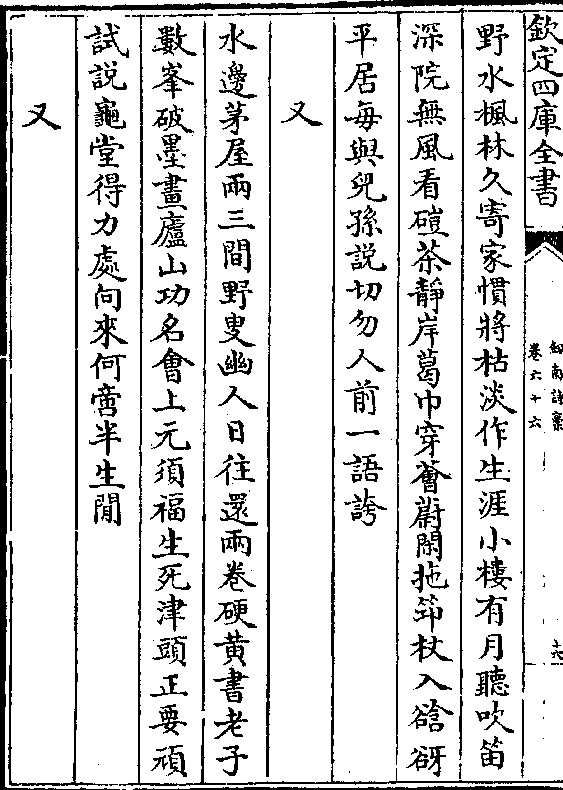 欽定四庫全書
劍南詩藁
卷六十六
十六
野水楓林久寄家慣將枯淡作生涯小樓有月聽吹笛
深院無風看磑茶靜岸葛巾穿薈蔚閑拖筇杖入谽谺
平居每與兒孫説切勿人前一語誇
又
水邊茅屋兩三間野叟幽人日往還兩卷硬黄書老子
數峯破墨畫廬山功名會上元須福生死津頭正要頑
試説龜堂得力處向來何啻半生閒
又